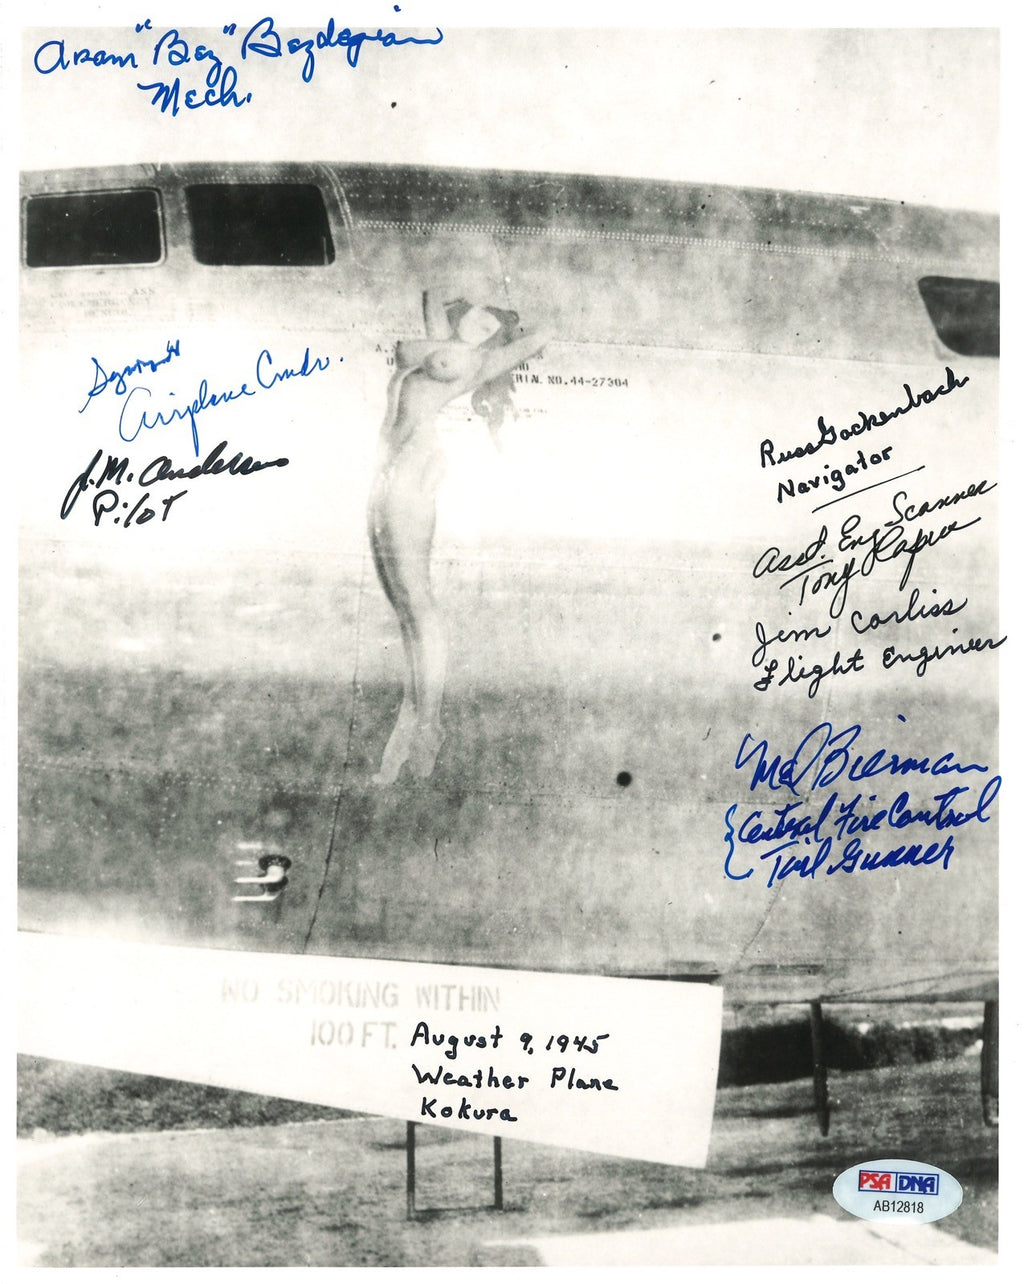 Aram "Boz" Bozdogian
Mech.
Airplane Cmdr.
J.M. Anderson
Pilot
RIAL NO. 44-27304
Russ Gackenbach
Navigator
Asst. Eng Scanner
Tony Capua
Jim Corliss
Flight Engineer
Mel Bierman
Central Fire Control
Tail Gunner
NO SMOKING WITHIN
100 FT.
August 9, 1945
Weather Plane
Kokura
PSA DNA
AB12818